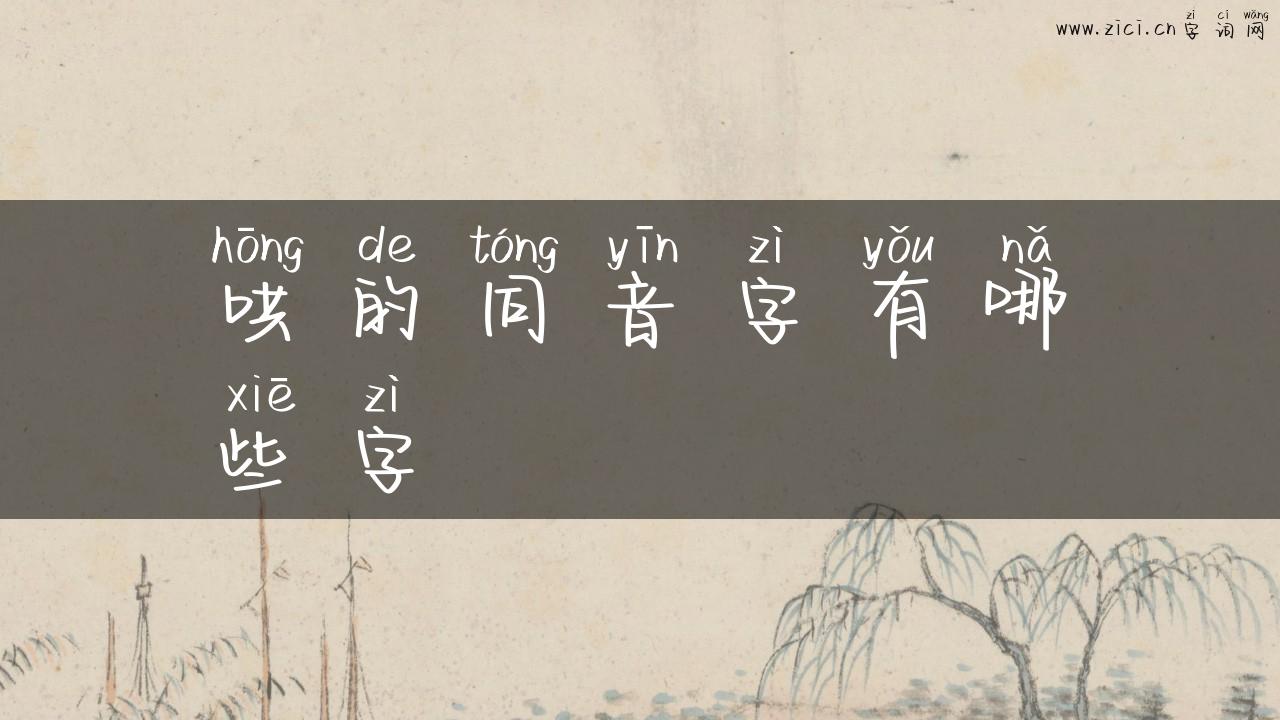 zì cí wǎng
www.zici.cn 字 词 网
hōng de tóng yīn zì yǒu nǎ
哄 的 同 音 字 有 哪
xiē zì
些 字